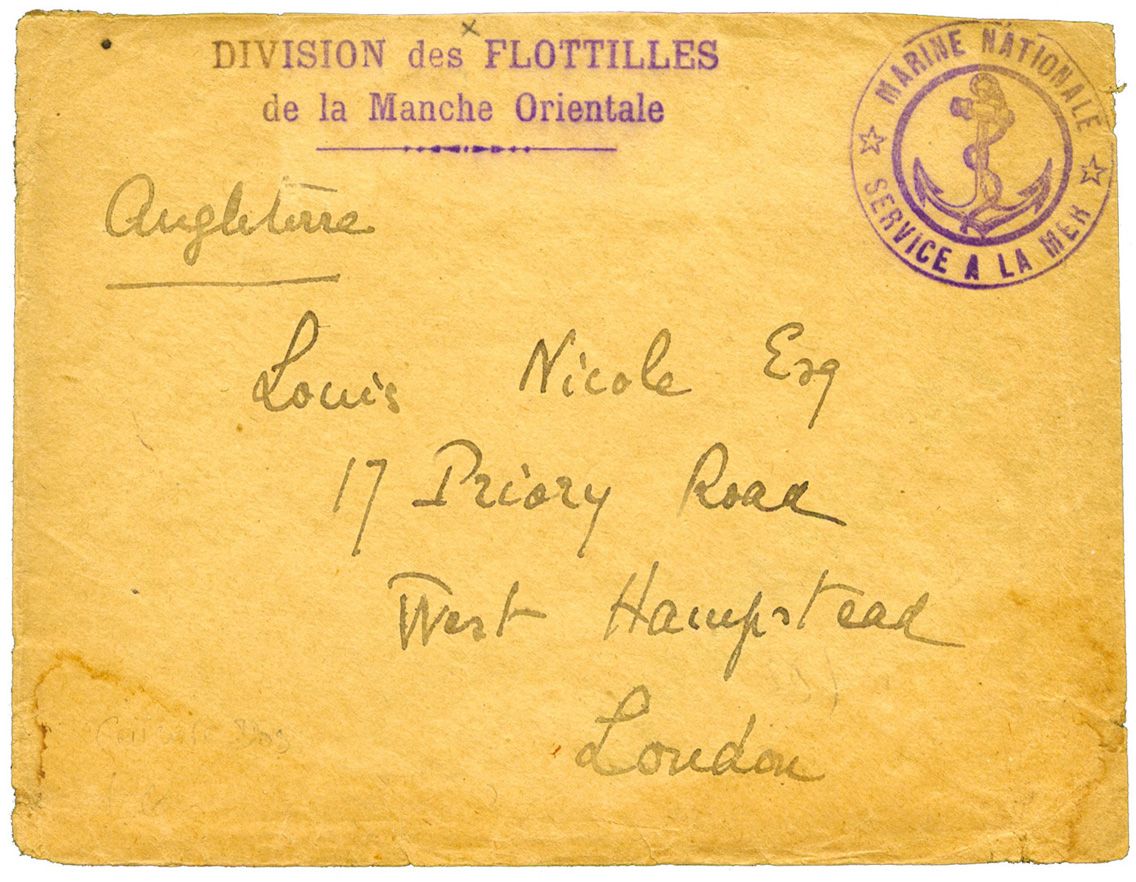 DIVISION des FLOTTILLES
de la Manche Orientale
MARINE NATIONALE
SERVICE A LA MER
Angleterre
Louis Nicole Esq
17 Priory Road
West Hampstead
London